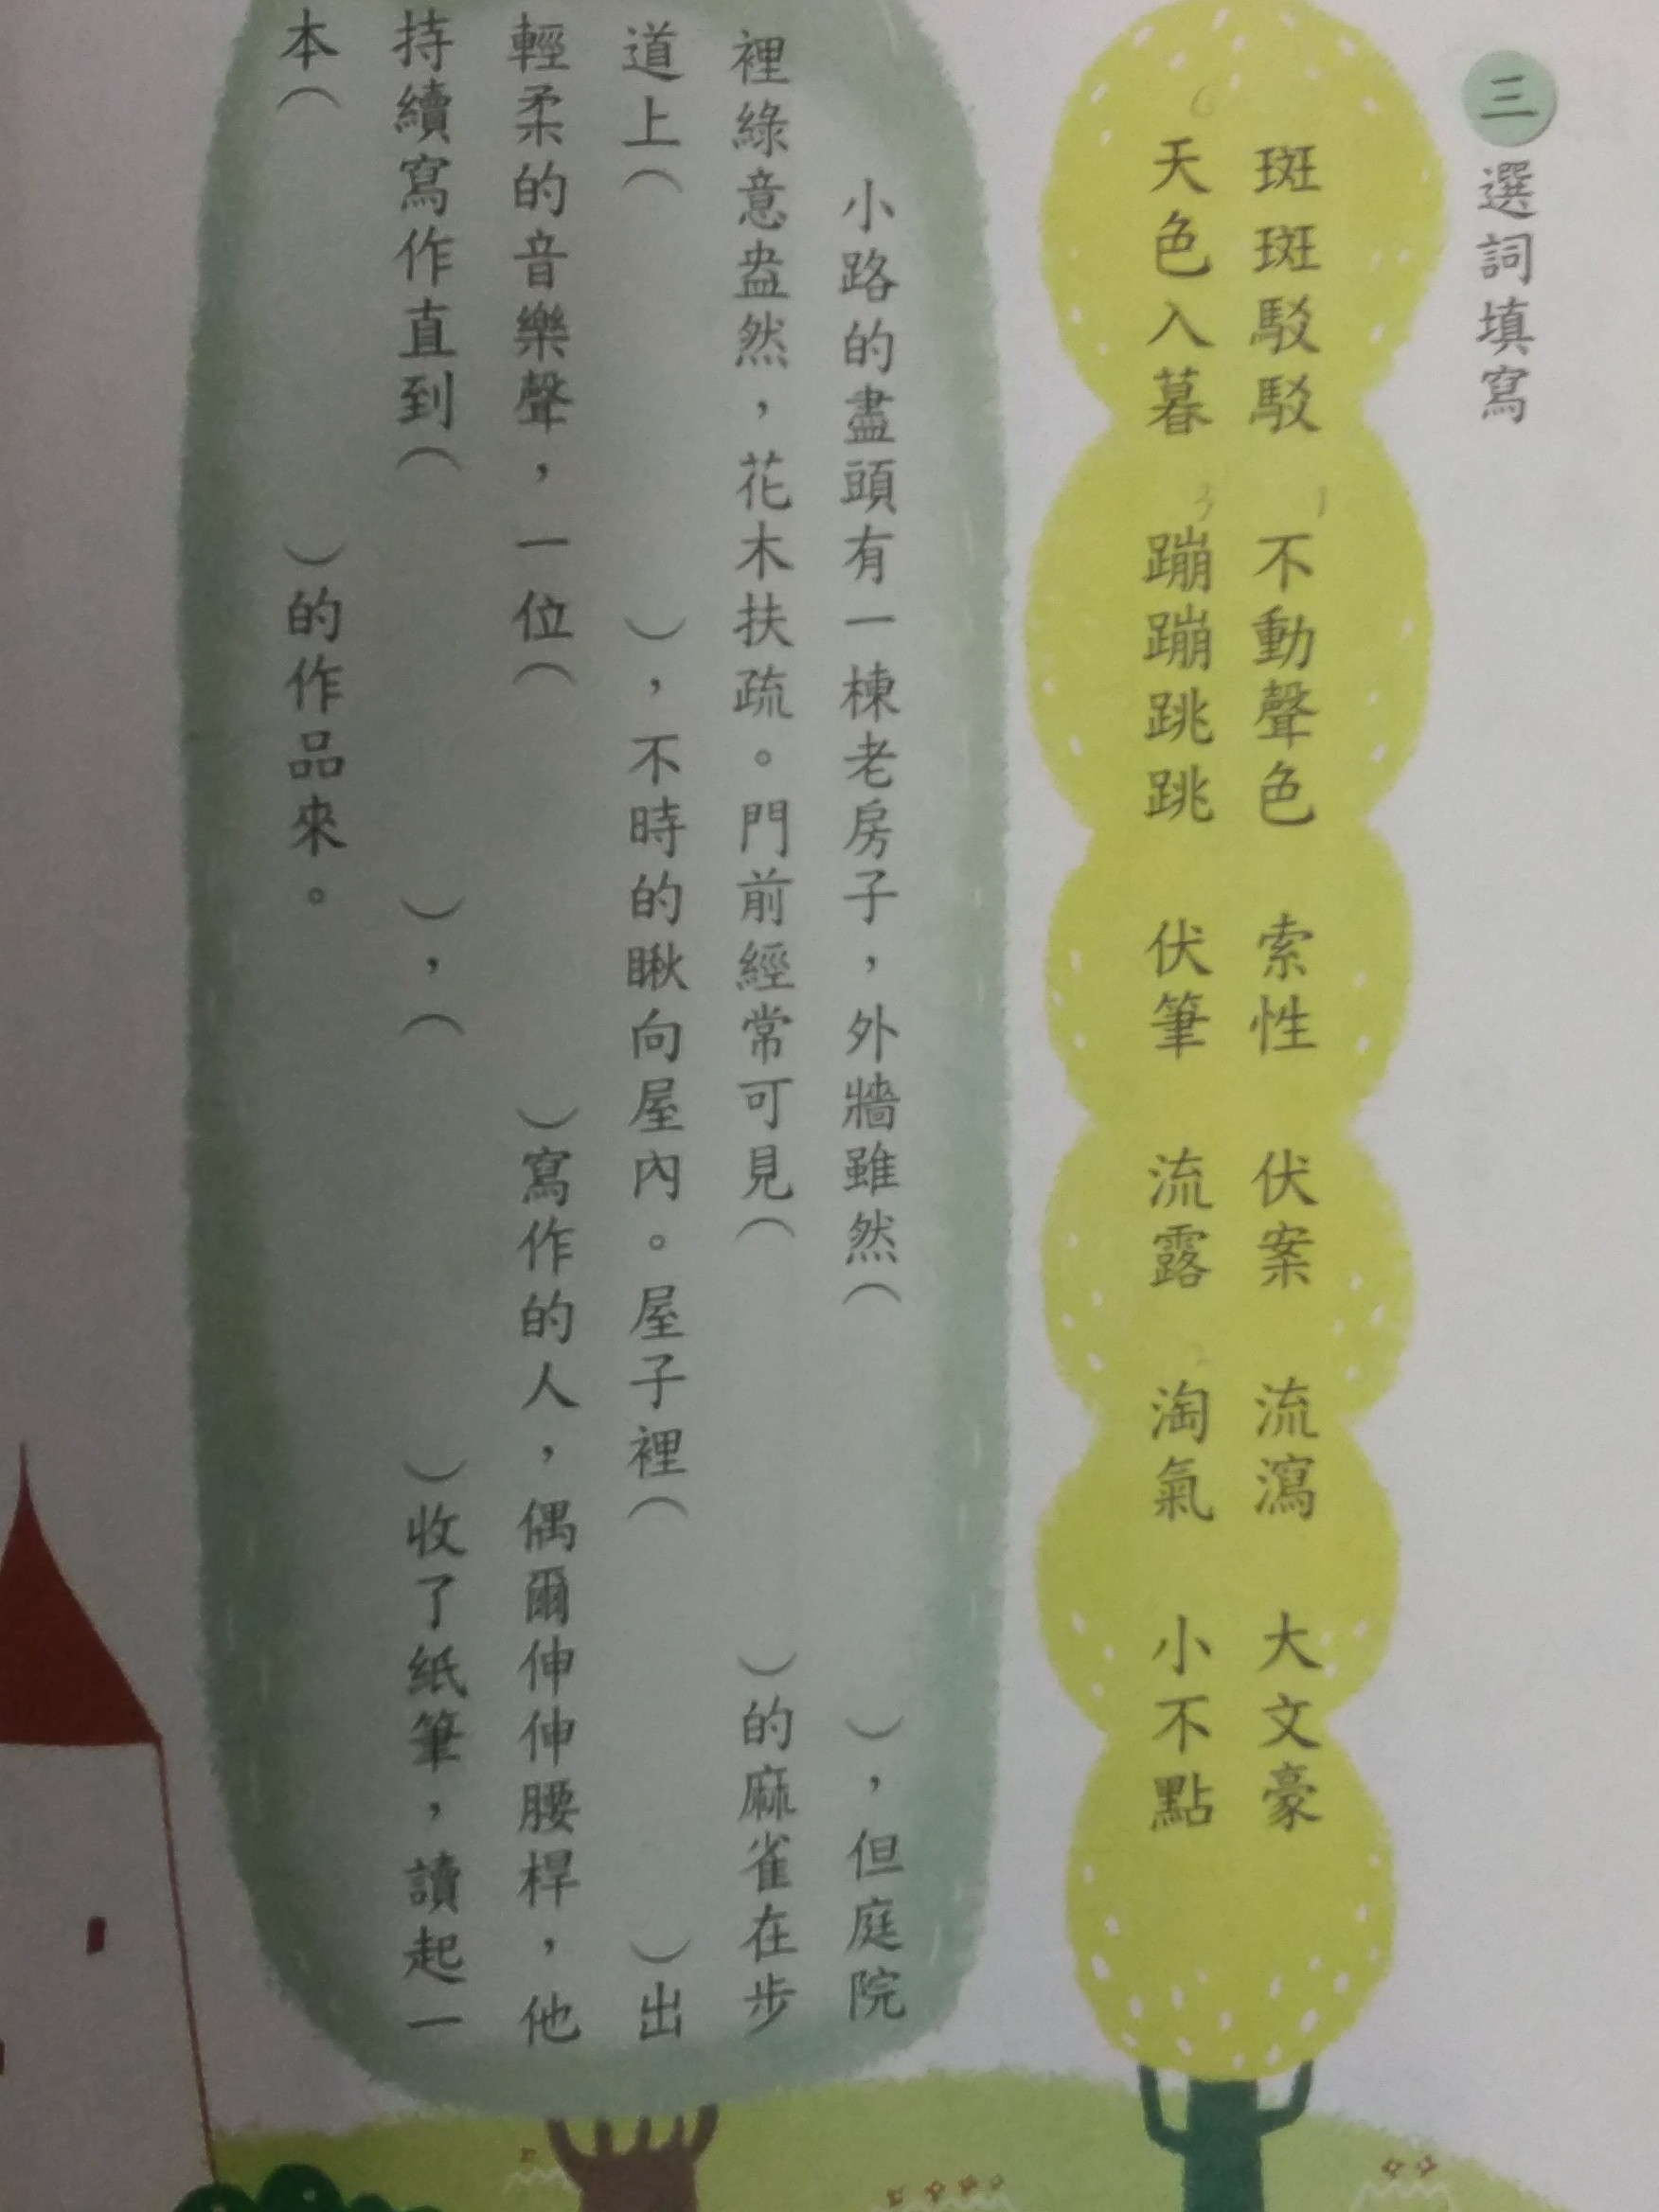 三 選詞填寫
斑斑駁駁 不動聲色 索性 伏案 流瀉 大文豪
天色入暮 蹦蹦跳跳 伏筆 流露 淘氣 小不點
小路的盡頭有一棟老房子，外牆雖然（ ），但庭院
裡綠意盎然，花木扶疏。門前經常可見（ ）的麻雀在步
道上（ ），不時的瞅向屋內。屋子裡（ ）出
輕柔的音樂聲，一位（ ）寫作的人，偶爾伸伸腰桿，他
持續寫作直到（ ），（ ）收了紙筆，讀起一
本（ ）的作品來。